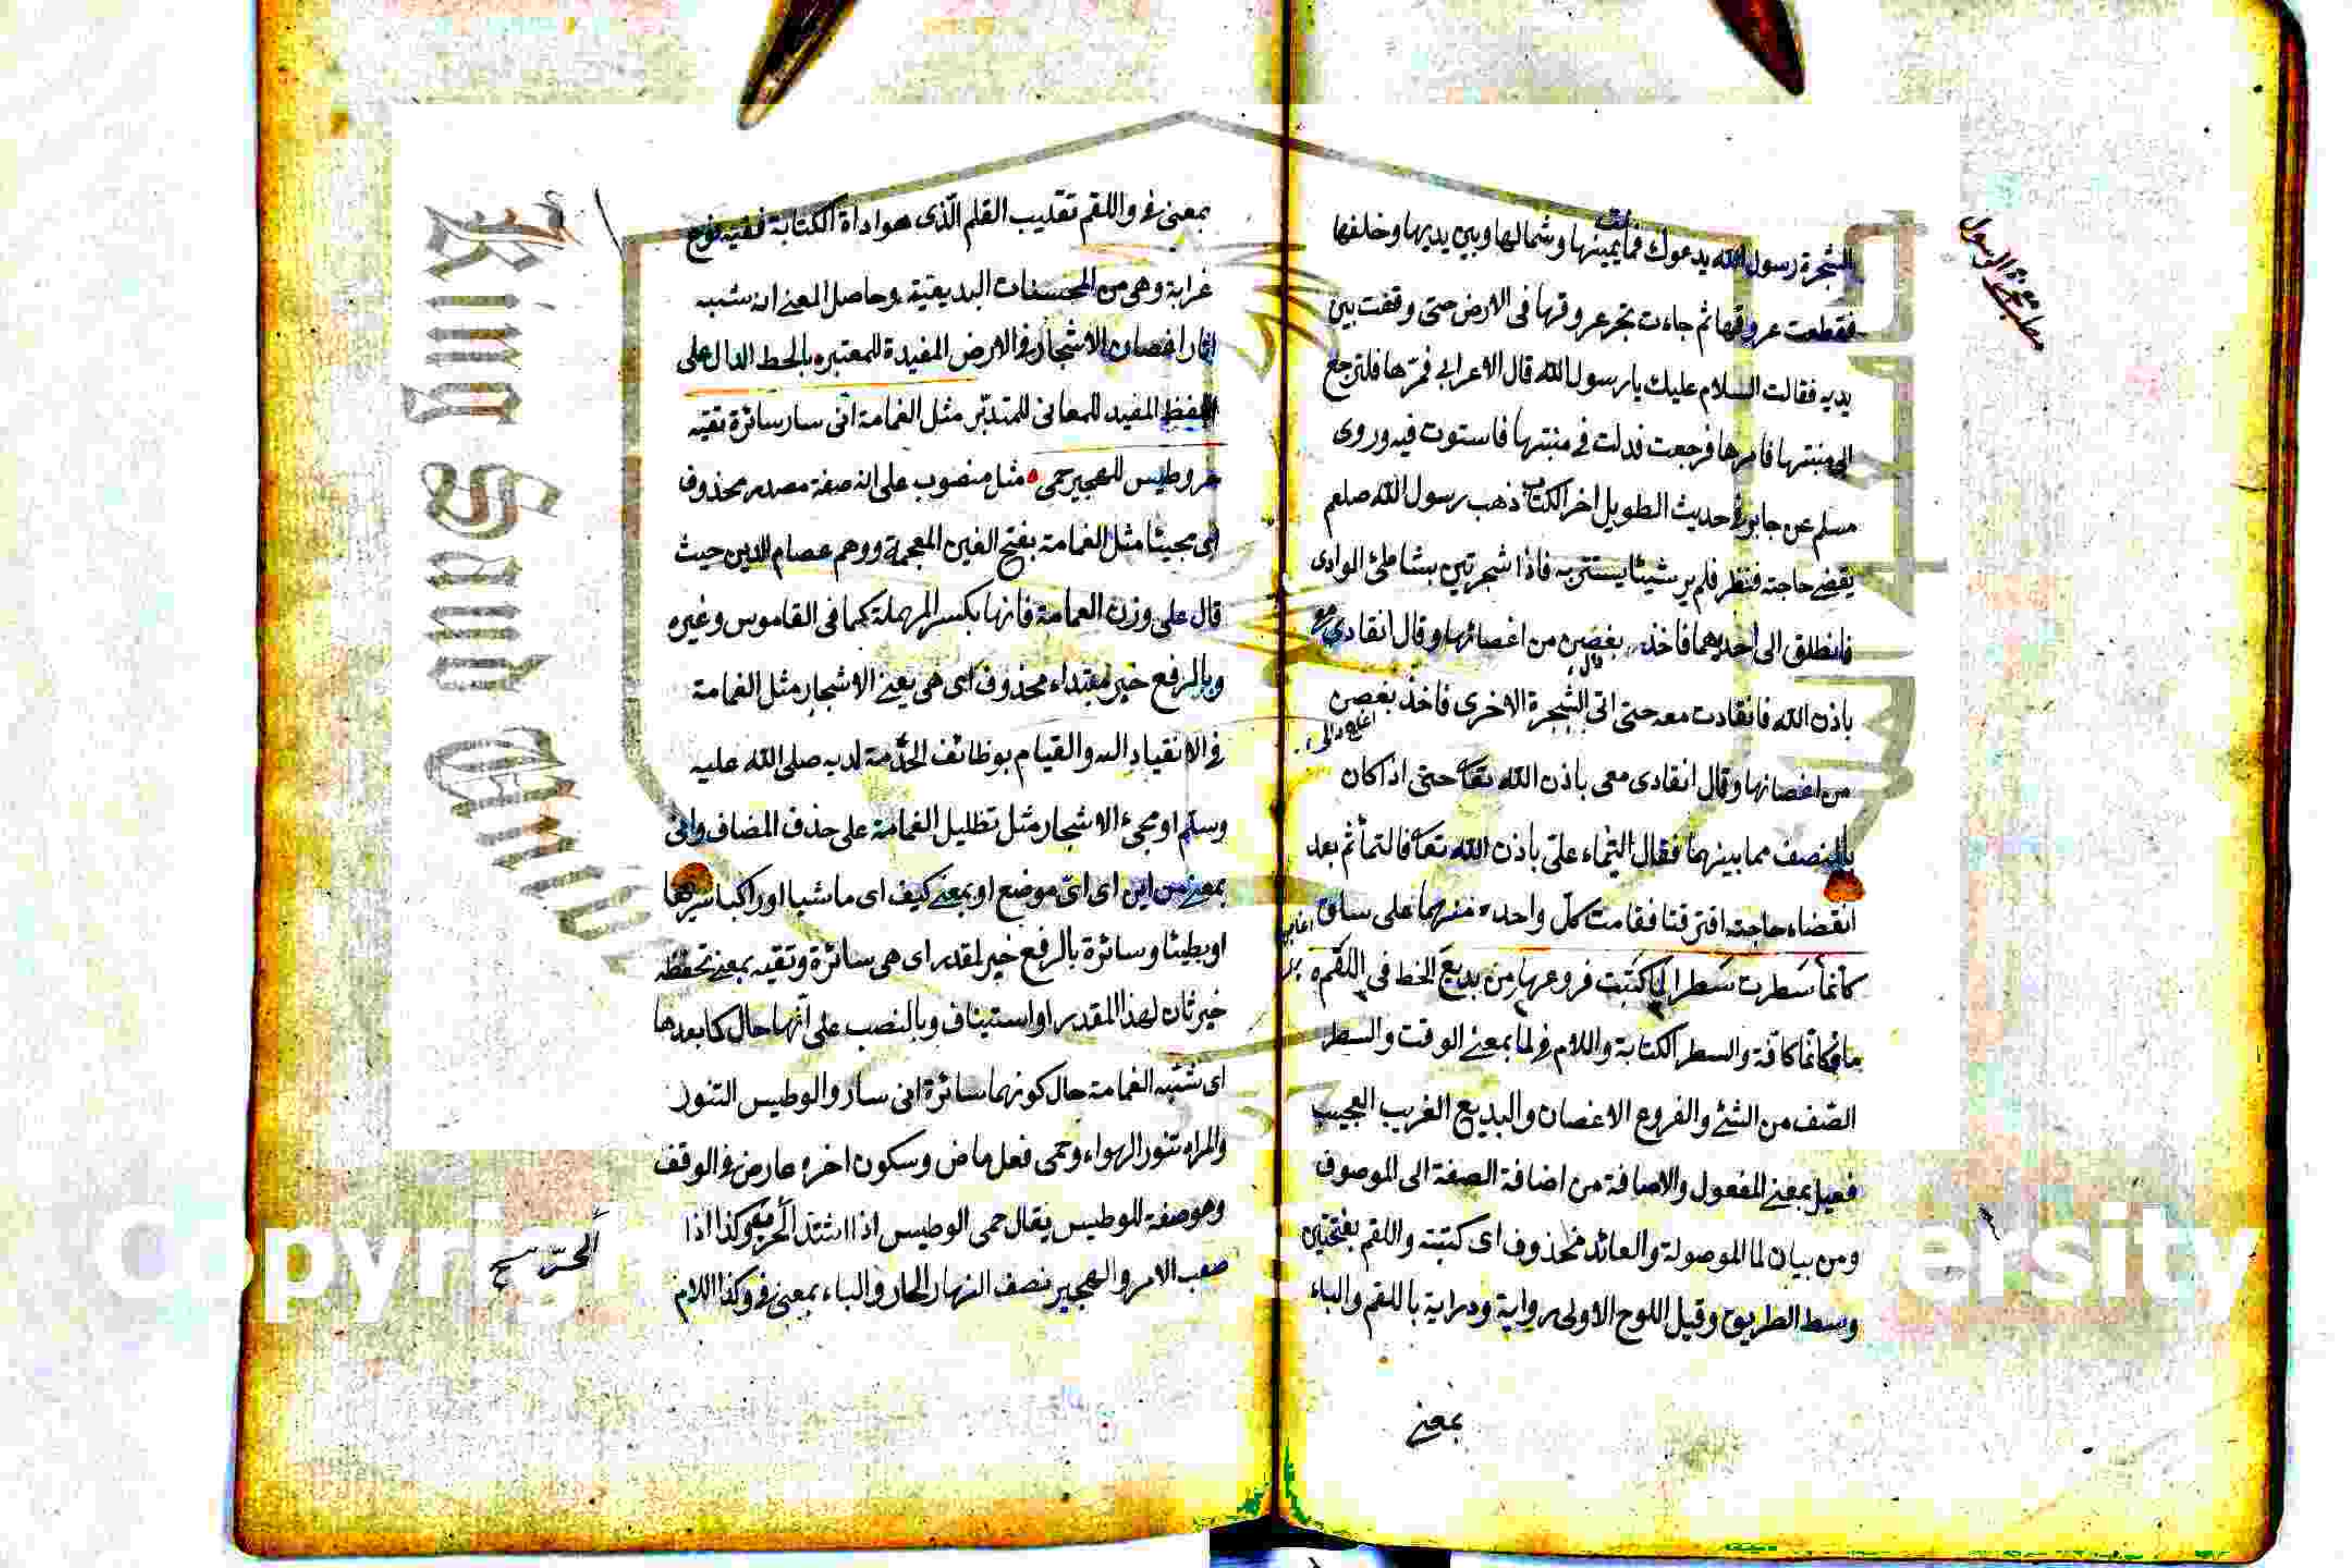 الشجرة رسول الله يدعوك فمالت يمينها وشمالها وبين يديها وخلفها
فقطعت عروقها ثم جاءت تجر عروقها في الارض حتى وقفت بين
يديه فقالت السلام عليك يا رسول الله قال الاعرابي فمرها فلترجع
الى منبتها فامرها فرجعت فدلت في منبتها فاستوت فيه وروى
مسلم عن جابر في حديث الطويل اخر الكتاب ذهب رسول الله صلعم
يقضي حاجته فنظر فلم ير شيئا يستتر به فاذا شجرتين بشاطئ الوادى
فانطلق الى احديهما فاخذ بغصن من اغصانها وقال انقادى
باذن الله فانقادت معه حتى اتى الشجرة الاخرى فاخذ بغصن
من اغصانها وقال انقادى معى باذن الله تعا حتى اذا كان
بالمنصف مما بينهما فقال التيما علىّ باذن الله تعا فالتما ثم بعد
انقضاء حاجته افترقتا فقامت كل واحدة منهما على ساق
كأنما سطرت سطرا لما كتبت فروعها من بديع الخط في اللقم
ما في كانما كافة والسطر الكتابة واللام في لما بمعنى الوقت والسطر
الصّف من الشئ والفروع الاغصان والبديع الغريب العجيب
فعيل بمعنى المفعول والاضافة من اضافة الصفة الى الموصوف
ومن بيان لما الموصولة والعائد محذوف اى كتبته واللقم بفتحتين
وسط الطريق وقيل اللوح الاولى رواية ودراية باللقم والباء
بمعنى
بمعنى في واللقم تقليب القلم الّذى هو اداة الكتابة ففيه نوع
غرابة وهى من المحسنات البديعية وحاصل المعنى انه شبه
اثار اغصان الاشجار في الارض المفيدة للمعتبر بالخط الدال على
اللفظ المفيد للمعانى للمتدبّر مثل الغمامة انى سار سائرة تقيه
حر وطيس للهجير حمى مثل منصوب على انه صفة مصدر محذوف
اى مجيئا مثل الغمامة بفتح الغين المعجمة ووهم عصام الدين حيث
قال على وزن العمامة فانها بكسر المهملة كما في القاموس وغيره
وبالرفع خبر مبتداء محذوف اى هى يعنى الاشجار مثل الغمامة
في الانقياد اليه والقيام بوظائف الخدمة لديه صلى الله عليه
وسلم او مجئ الاشجار مثل تظليل الغمامة على حذف المضاف وانى
بمعنى من اين اى اىّ موضع او بمعنى كيف اى ماشيا او راكبا سريعا
او بطيئا وسائرة بالرفع خبر لمقدر اى هى سائرة وتقيه بمعنى تحفظه
خبر ثان لهذا المقدر او استيناف وبالنصب على انها حال كما بعدها
اى شبه الغمامة حال كونها سائرة انى سار والوطيس التنور
والمراد تنور الهواء وحمى فعل ماض وسكون اخره عارض في الوقف
وهو صفة للوطيس يقال حمى الوطيس اذا اشتد الحر وكذا اذا
صعب الامر والهجير نصف النهار الحار والباء بمعنى في وكذا اللام
الحرّ
King Saud
Copyrig
ersity